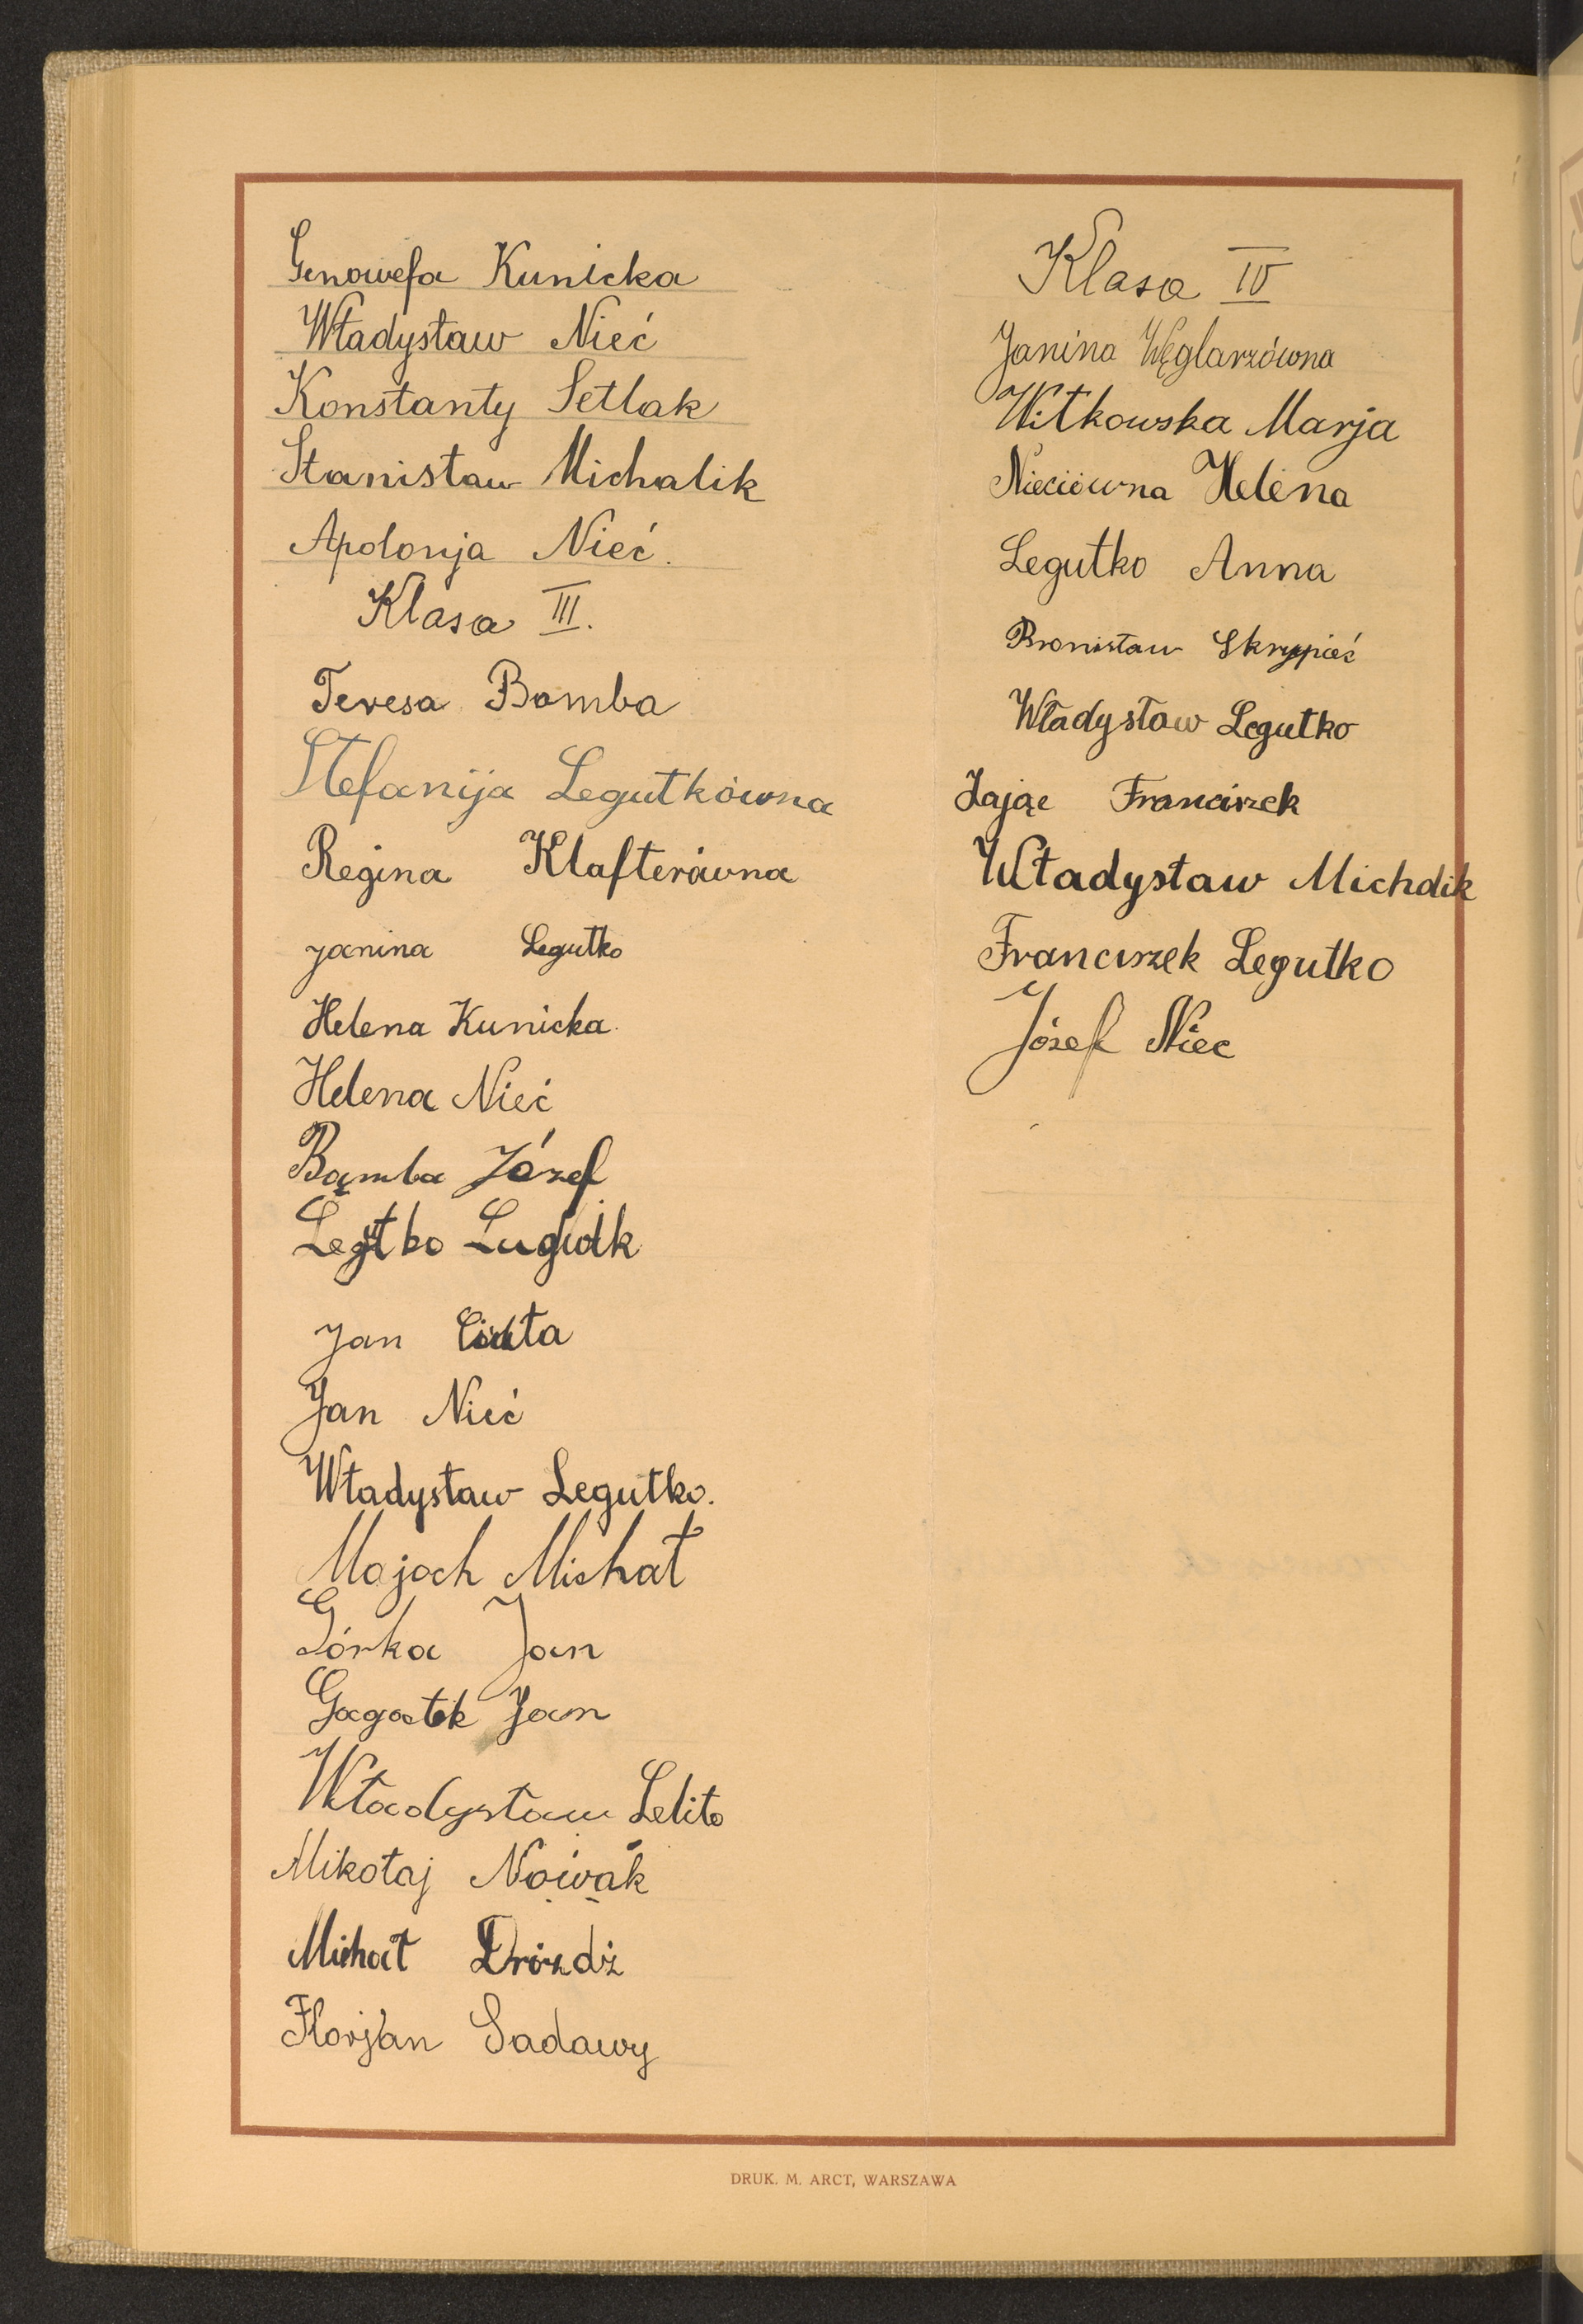 Genowefa Kunicka
Władysław Nieć
Konstanty Setlak
Stanisław Michalik
Apolonja Nieć.
Klasa III.
Teresa Bomba
Stefanija Legutkówna
Regina Klafterówna
Janina Legutko
Helena Kunicka.
Helena Nieć
Bąmba Józef
Jan
Jan Nieć
Władysław Legutko.
Majoch Michał
Górka Jan
Gagatek Jan
Władysław Lelito
Mikołaj Nowak
Michał Dróżdż
Florjan Sadawy
Klasa IV
Janina Węglarzówna
Witkowska Marja
Nieciówna Helena
Legutko Anna
Bronisław
Władysław Legutko
Zając Franciszek
Władysław Michalik
Franciszek Legutko
Józef Niec
DRUK. M. ARCT, WARSZAWA